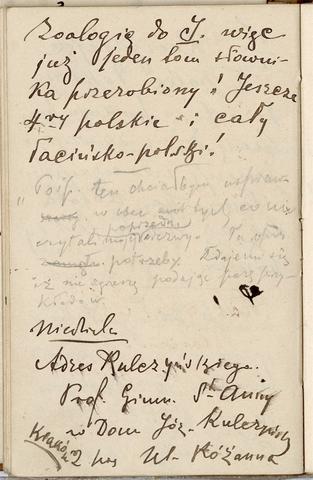 Zoologię do J. więc
już jeden tom słowni-
ka przerobiony! Jeszcze
4ry polskie i cały
łacińsko-polski!
ten chciałbym
w być co nie
czytali
potrzeby. Zdaje mi się
iż nie podając parę przy-
kładów.
Niedziela
Adres Kulczyńskiego.
Prof. Gimn. St Anny
w Dom Józ. Kulczyński
Kraków 2 Ul. Różanna